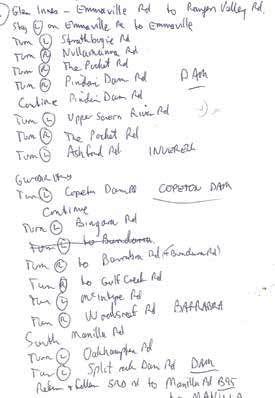 Glen Innes - Emmaville Rd to Ranger Valley Rd.
Stay L on Emmaville Rd to Emmaville
Turn L Strathbogie Rd
Turn R Nullamanna Rd
Turn R The Pocket Rd
Turn R Pindari Dam Rd DAM
Continue Pindari Dam Rd
Turn L Upper Severn River Rd
Turn R The Pocket Rd
Turn L Ashford Rd INVERELL
Turn L Copeton Dam Rd COPETON DAM
Continue
Turn L Bingara Rd
Turn L to Bundarra
Turn R to Barraba Rd (Bundarra Rd)
Turn R to Gulf Creek Rd
Turn L McIntyre Rd
Turn R Woodsreef Rd BARRABA
South Manilla Rd
Turn L Oakhampton Rd
Turn L Split rock Dam Rd DAM
Return & follow Rd to Manilla Rd B95
to MANILLA